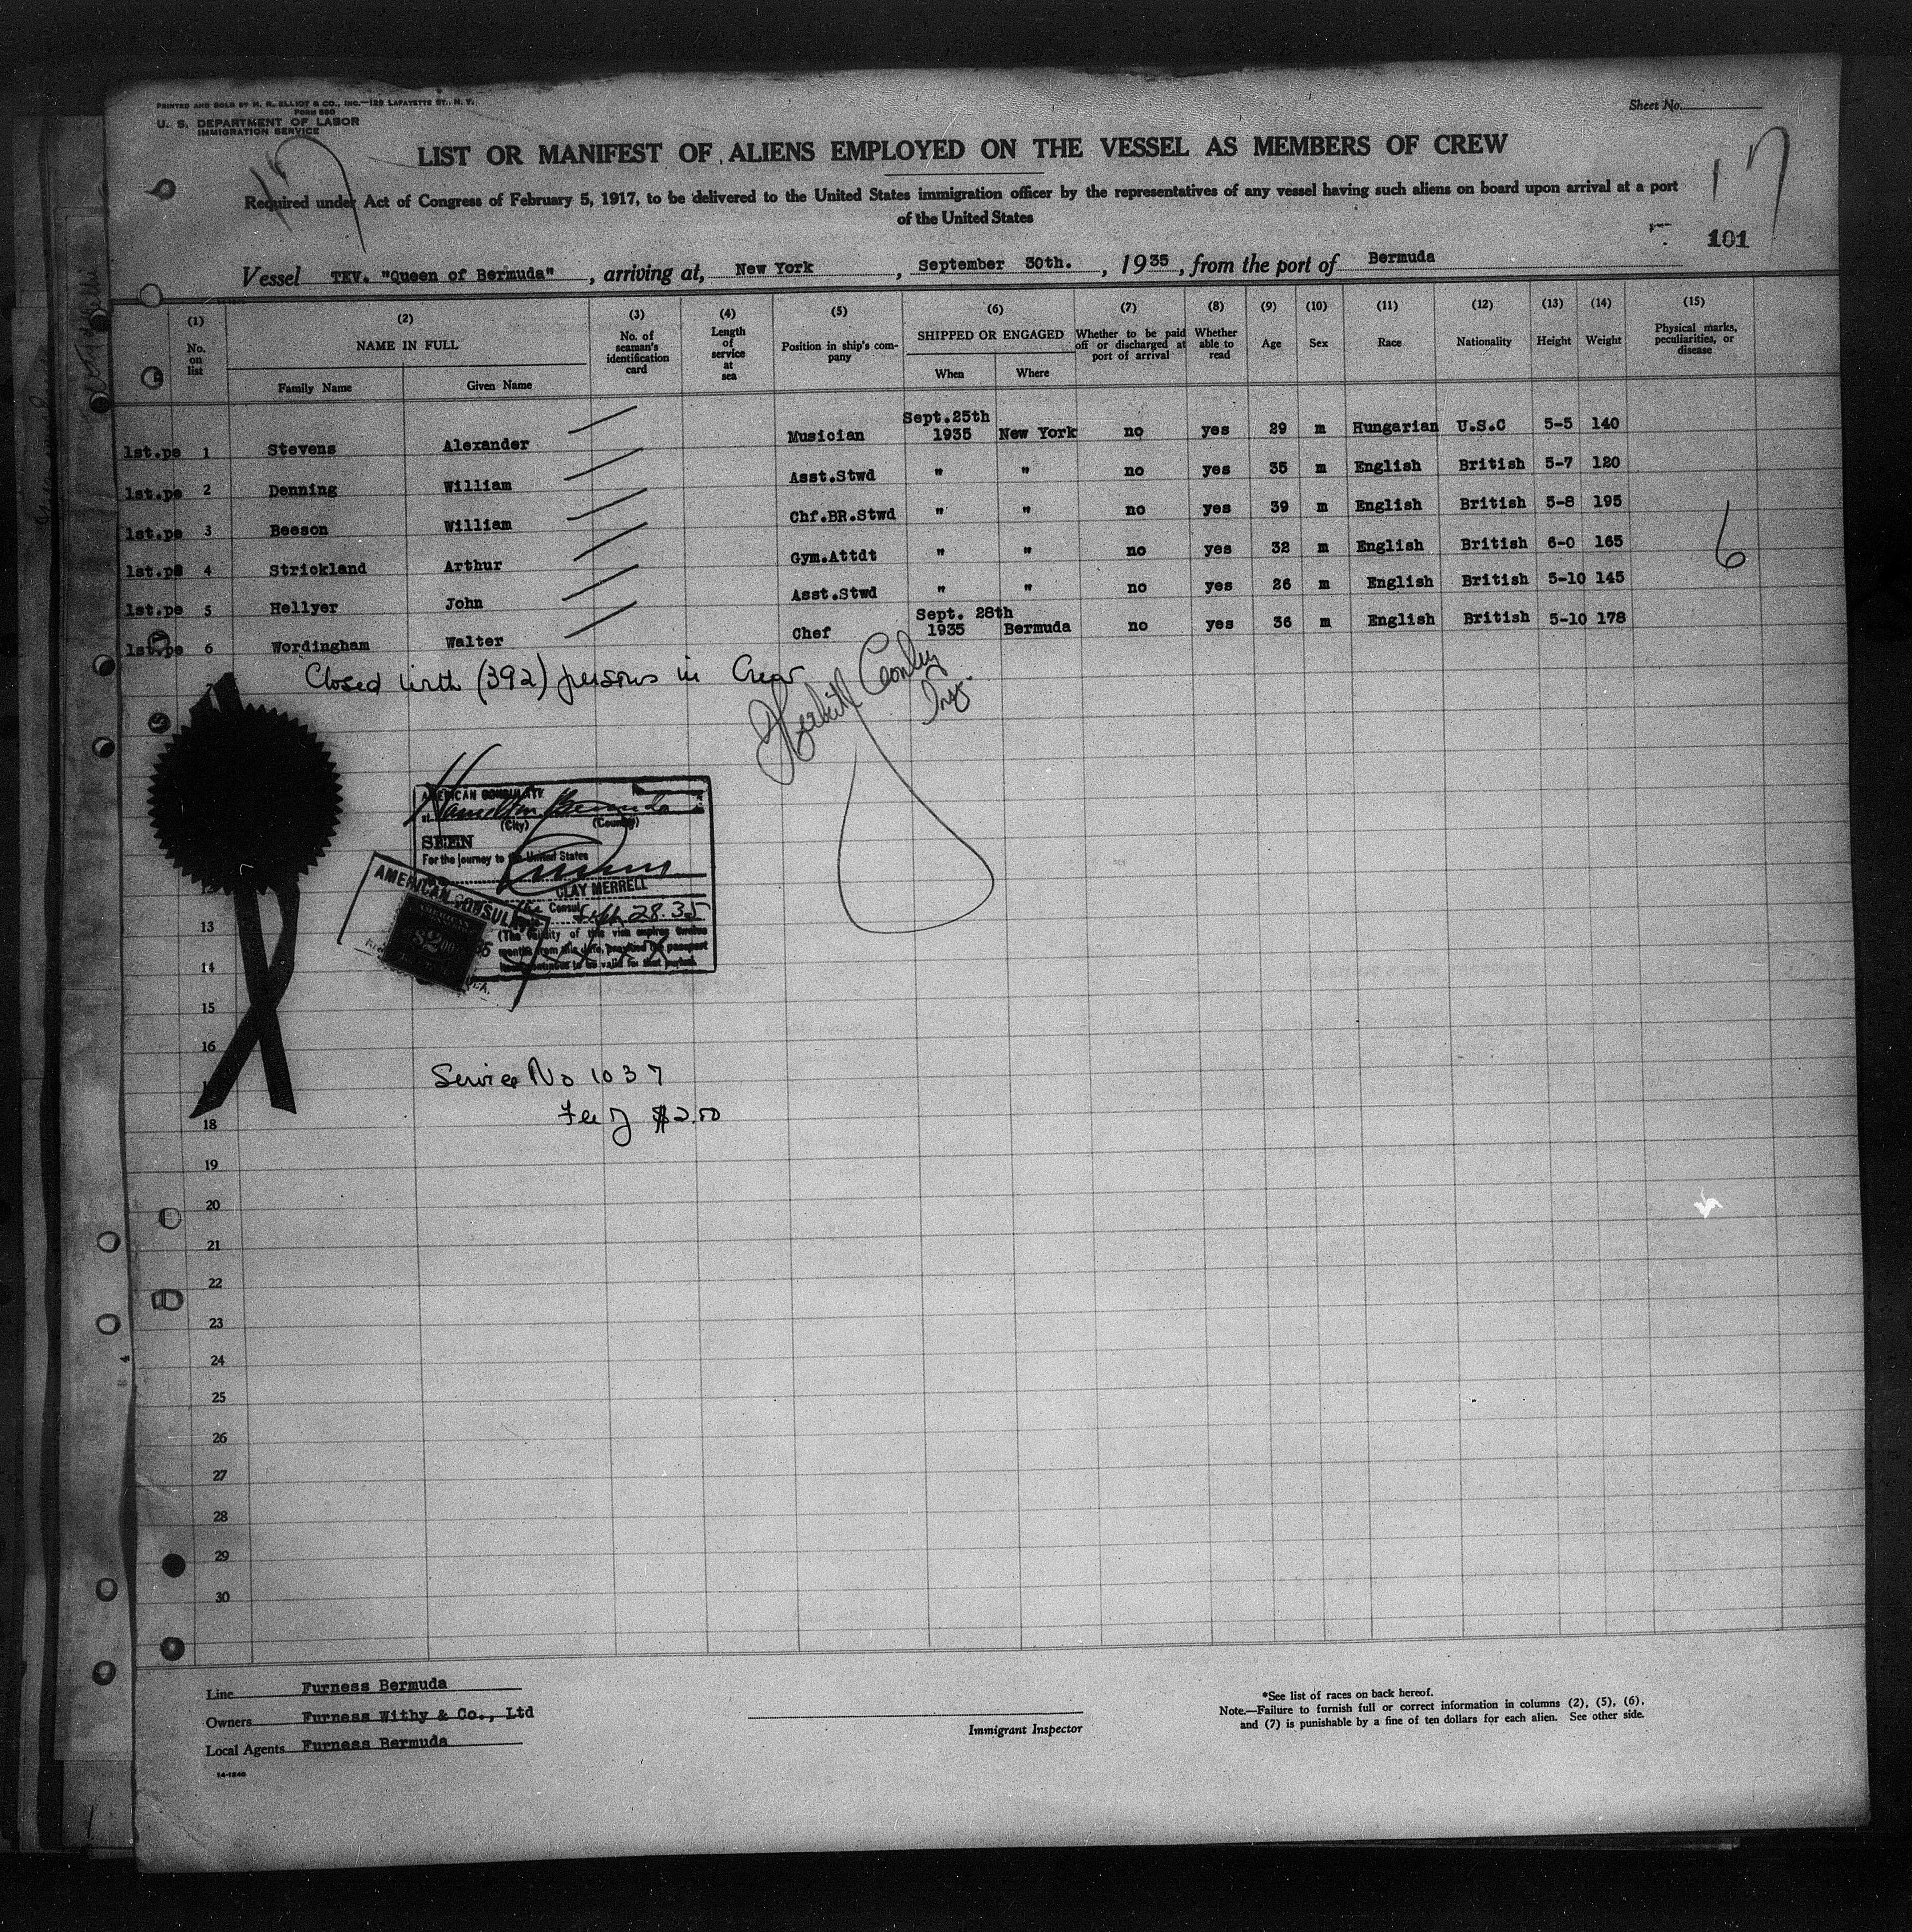 PRINTED AND SOLD BY M. R. ELLIOT & CO., INC.—129 LAFAYETTE ST., N. Y.
FORM 680
U. S. DEPARTMENT OF LABOR
IMMIGRATION SERVICE
Sheet No.
LIST OR MANIFEST OF ALIENS EMPLOYED ON THE VESSEL AS MEMBERS OF CREW
17
Required under Act of Congress of February 5, 1917, to be delivered to the United States immigration officer by the representatives of any vessel having such aliens on board upon arrival at a port
of the United States
101
Vessel TEV. "Queen of Bermuda", arriving at, New York, September 30th., 1935, from the port of Bermuda
(1) (2) (3) (4) (5) (6) (7) (8) (9) (10) (11) (12) (13) (14) (15)
No. on list NAME IN FULL Family Name Given Name No. of seaman's identification card Length of service at sea Position in ship's company SHIPPED OR ENGAGED When Where Whether to be paid off or discharged at port of arrival Whether able to read Age Sex Race Nationality Height Weight Physical marks, peculiarities, or disease
1st.pe 1 Stevens Alexander Musician Sept.25th 1935 New York no yes 29 m Hungarian U.S.C 5-5 140
1st.pe 2 Denning William Asst.Stwd " " no yes 35 m English British 5-7 120
1st.pe 3 Beeson William Chf.BR.Stwd " " no yes 39 m English British 5-8 195
1st.pe 4 Strickland Arthur Gym.Attdt " " no yes 32 m English British 6-0 165
6
1st.pe 5 Hellyer John Asst.Stwd " " no yes 26 m English British 5-10 145
1st.pe 6 Wordingham Walter Chef Sept. 28th 1935 Bermuda no yes 36 m English British 5-10 178
Closed with (392) persons in Crew
AMERICAN CONSULATE
at Hamilton Bermuda
(City) (Country)
SEEN
For the journey to the United States
CLAY MERRELL
Consul
Sept. 28.35
(The validity of this visa expires twelve
months from this date, provided the passport
to be valid for that period.
AMERICAN CONSULATE
$2.00
13
14
15
16
Service No 1037
Fee of $2.00
18
19
20
21
22
23
24
25
26
27
28
29
30
Line Furness Bermuda
Owners Furness Withy & Co., Ltd
Local Agents Furness Bermuda
14-1240
Immigrant Inspector
*See list of races on back hereof.
Note.—Failure to furnish full or correct information in columns (2), (5), (6),
and (7) is punishable by a fine of ten dollars for each alien. See other side.